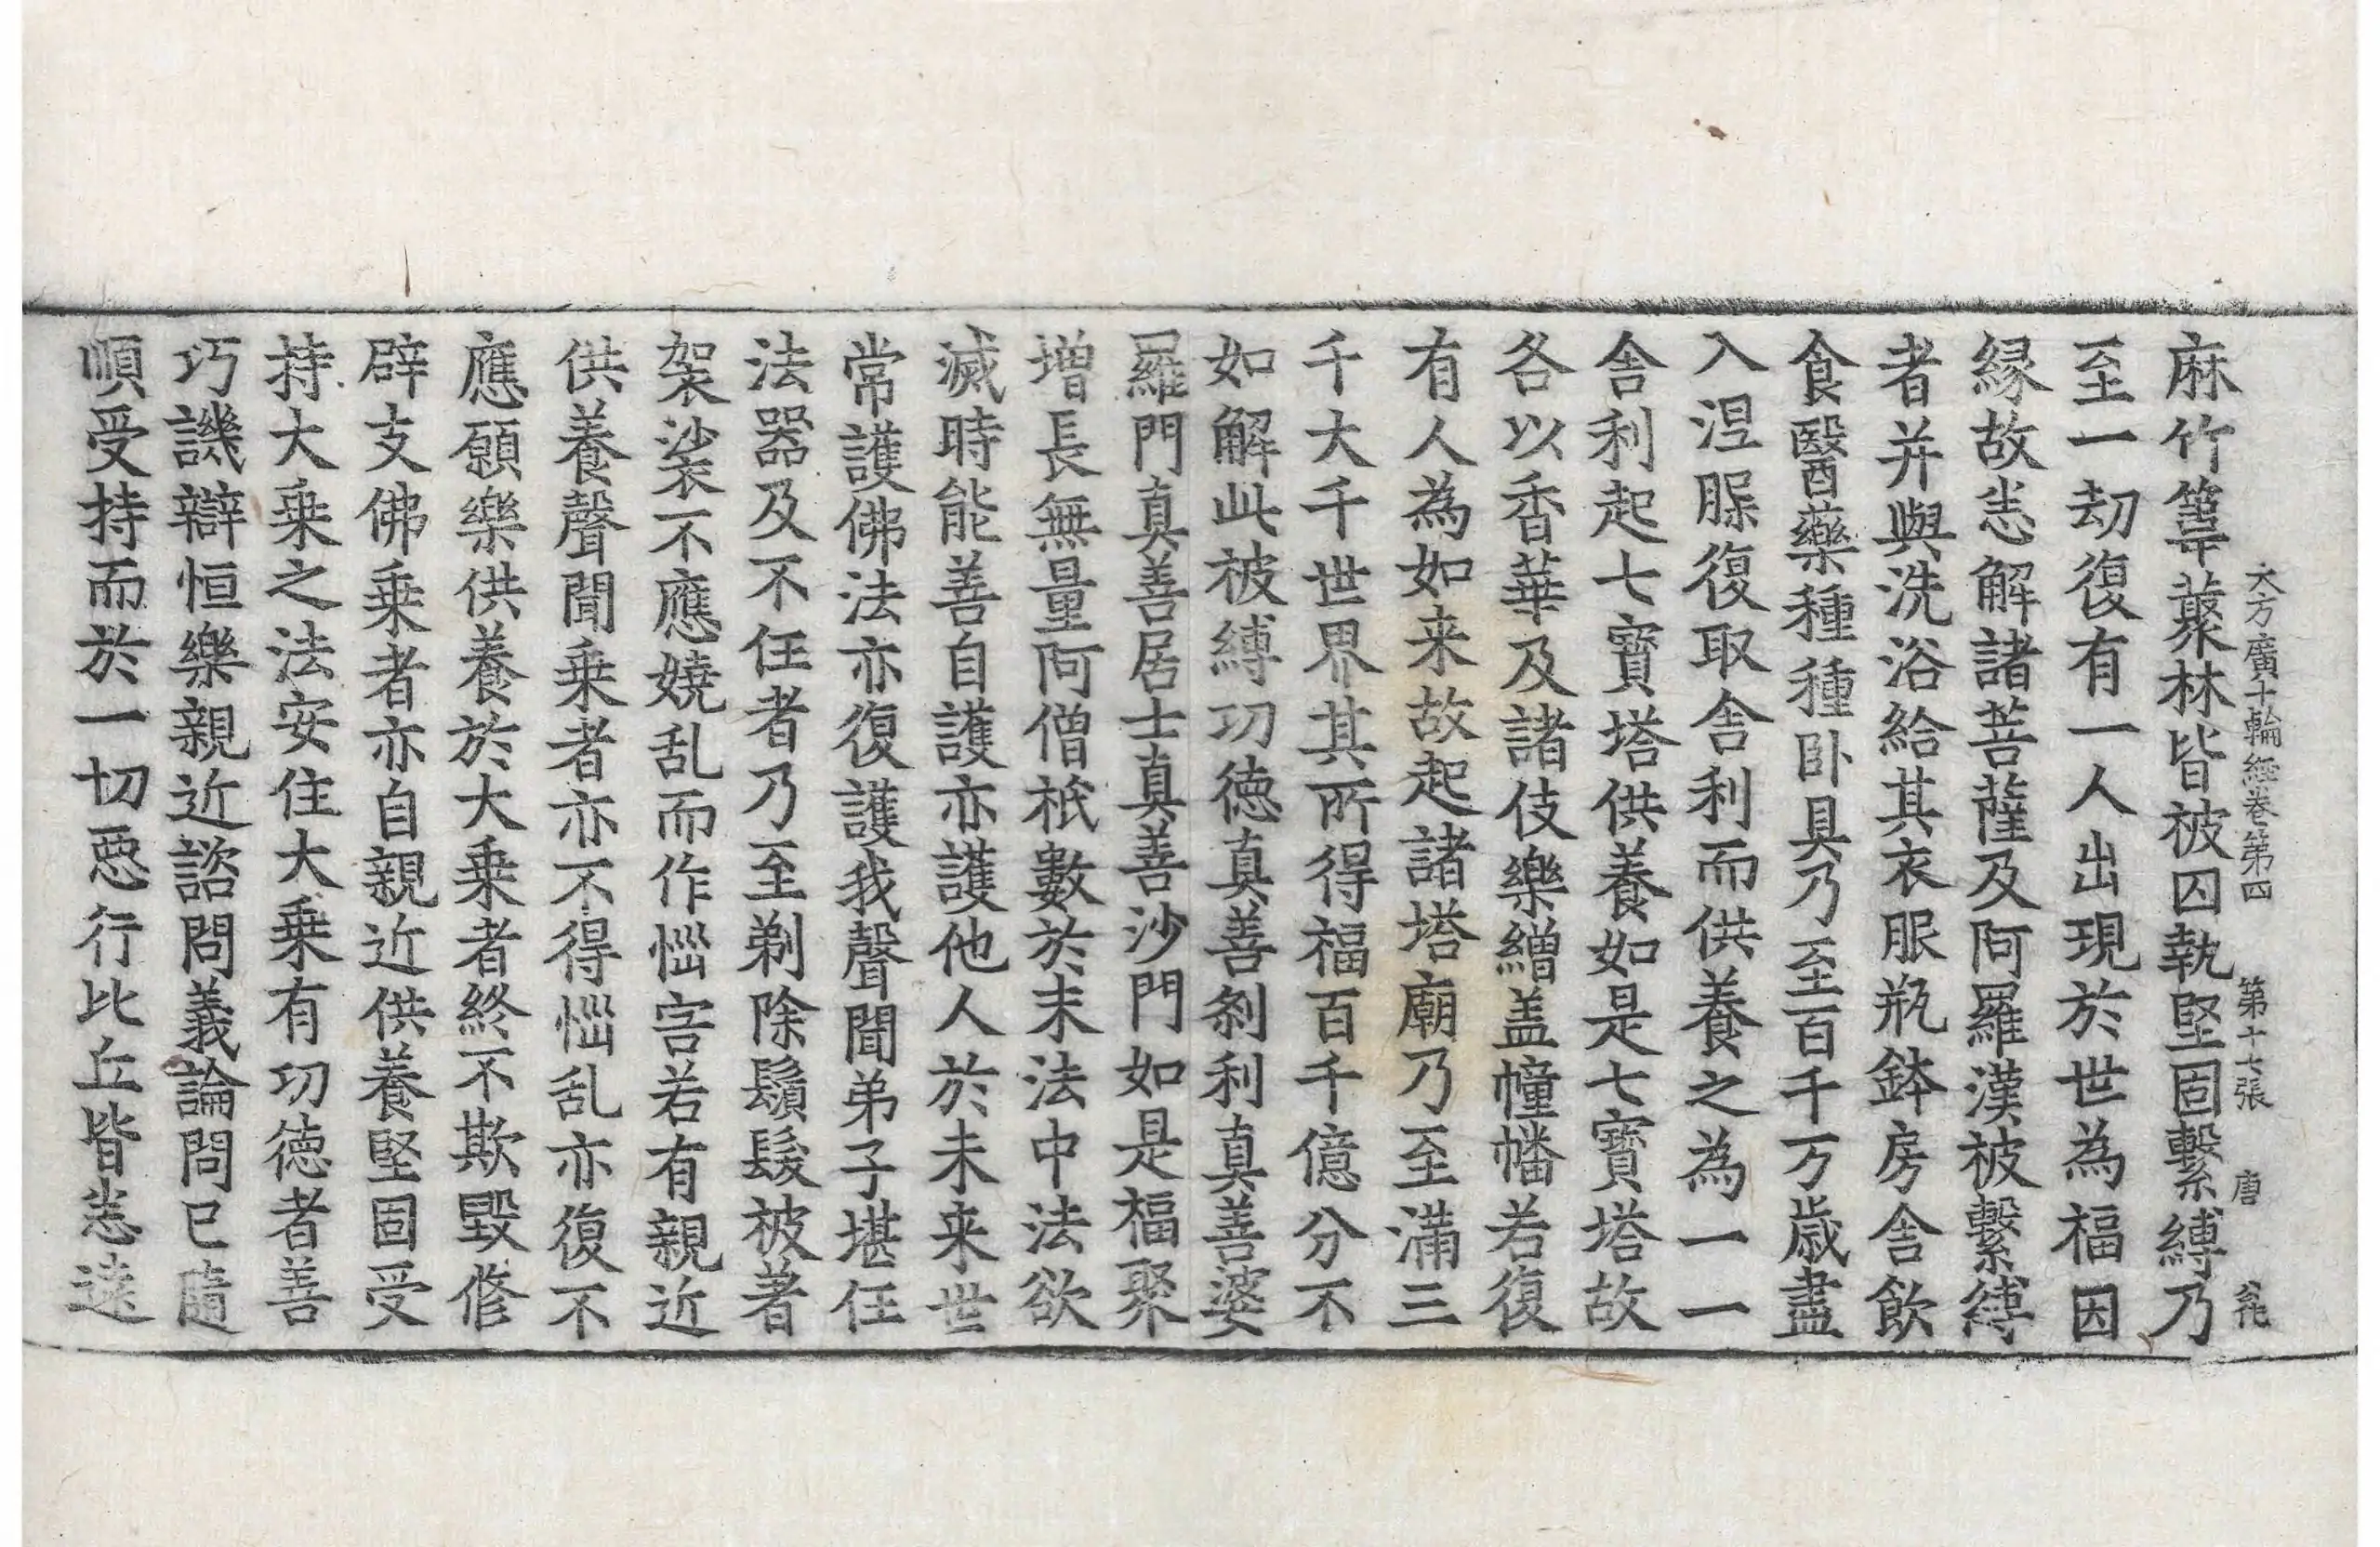 大方廣十輪經卷第四　第十七張　唐
麻竹等叢林皆被囚執堅固繫縛乃
至一劫復有一人出現於世為福因
縁故恙解諸菩薩及阿羅漢被繫縛
者并與洗浴給其衣服瓶鉢房舎飲
食醫藥種種卧具乃至百千万歳盡
入涅槃復取舎利而供養之為一一
舎利起七寳塔供養如是七寳塔故
各以香華及諸伎樂繒盖幢幡若復
有人為如来故起諸塔廟乃至滿三
千大千世界其所得福百千億分不
如解此被縛功徳真善刹利真善婆
羅門真善居士真善沙門如是福聚
增長無量阿僧祇數於末法中法欲
滅時能善自護亦護他人於未来世
常護佛法亦復護我聲聞弟子堪任
法器及不任者乃至剃除鬚髮被著
袈裟不應嬈乱而作惱害若有親近
供養聲聞乗者亦不得惱乱亦復不
應願樂供養於大乗者終不欺毀修
辟支佛乗者亦自親近供養堅固受
持大乗之法安住大乗有功徳者善
巧譏辯恒樂親近諮問義論問已隨
順受持而於一切惡行比丘皆恙遠